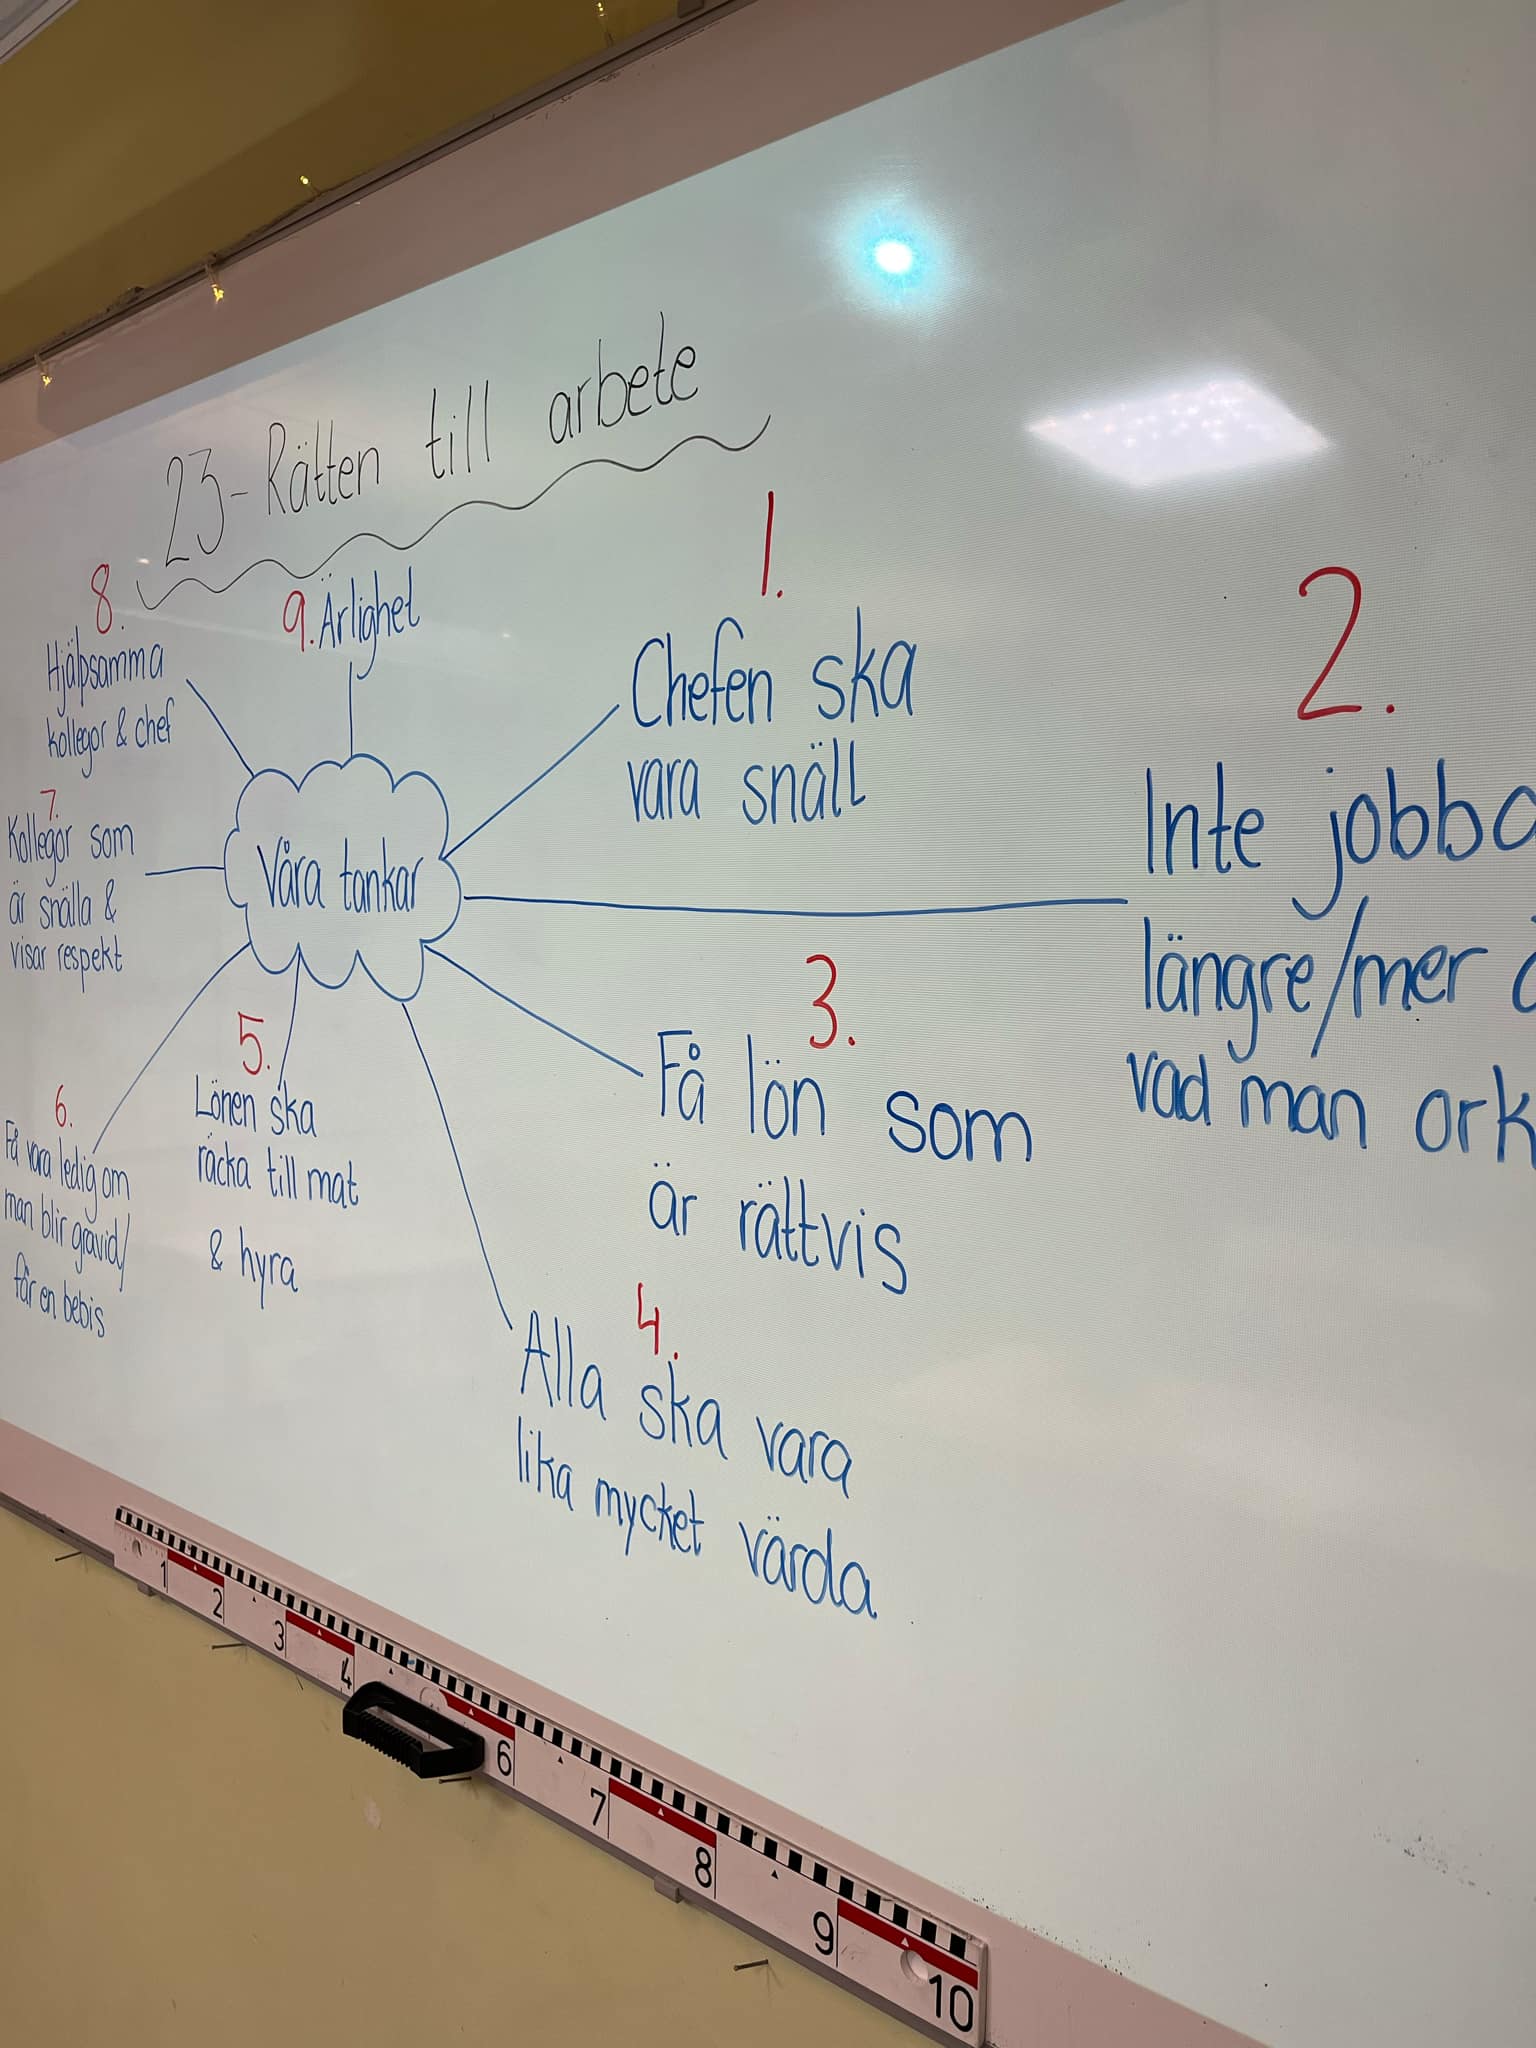 23-Rätten till arbete
1.
Chefen ska
vara snäll
2.
Inte jobba
längre/mer
vad man ork
3.
Få lön som
är rättvis
4.
Alla ska vara
lika mycket värda
5.
Lönen ska
räcka till mat
& hyra
6.
Få vara ledig om
man blir gravid/
får en bebis
7.
Kollegor som
är snälla &
visar respekt
8.
Hjälpsamma
kollegor & chef
9. Ärlighet
Våra tankar
1 2 3 4 6 7 8 9 10